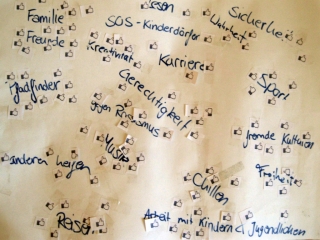 Familie
Freunde
SOS-Kinderdörfer
Kreativität
Karriere
Gerechtigkeit
Sport
gegen Rassismus
Musik
fremde Kulturen
anderen helfen
Chillen
Freiheit
Arbeit mit Kindern & Jugendlichen